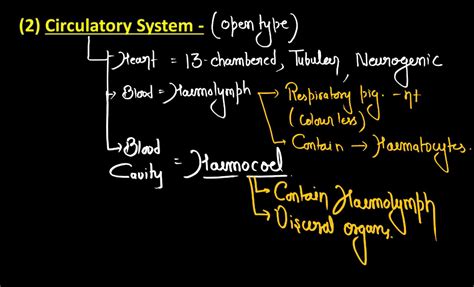 (2) Circulatory System - (open type)
Heart = 13-chambered, Tubular, Neurogenic
Blood = Haemolymph → Respiratory pig. -
(colourless)
Contain → Haematocytes.
Blood Cavity = Haemocoel
Contain Haemolymph
Visceral organs.